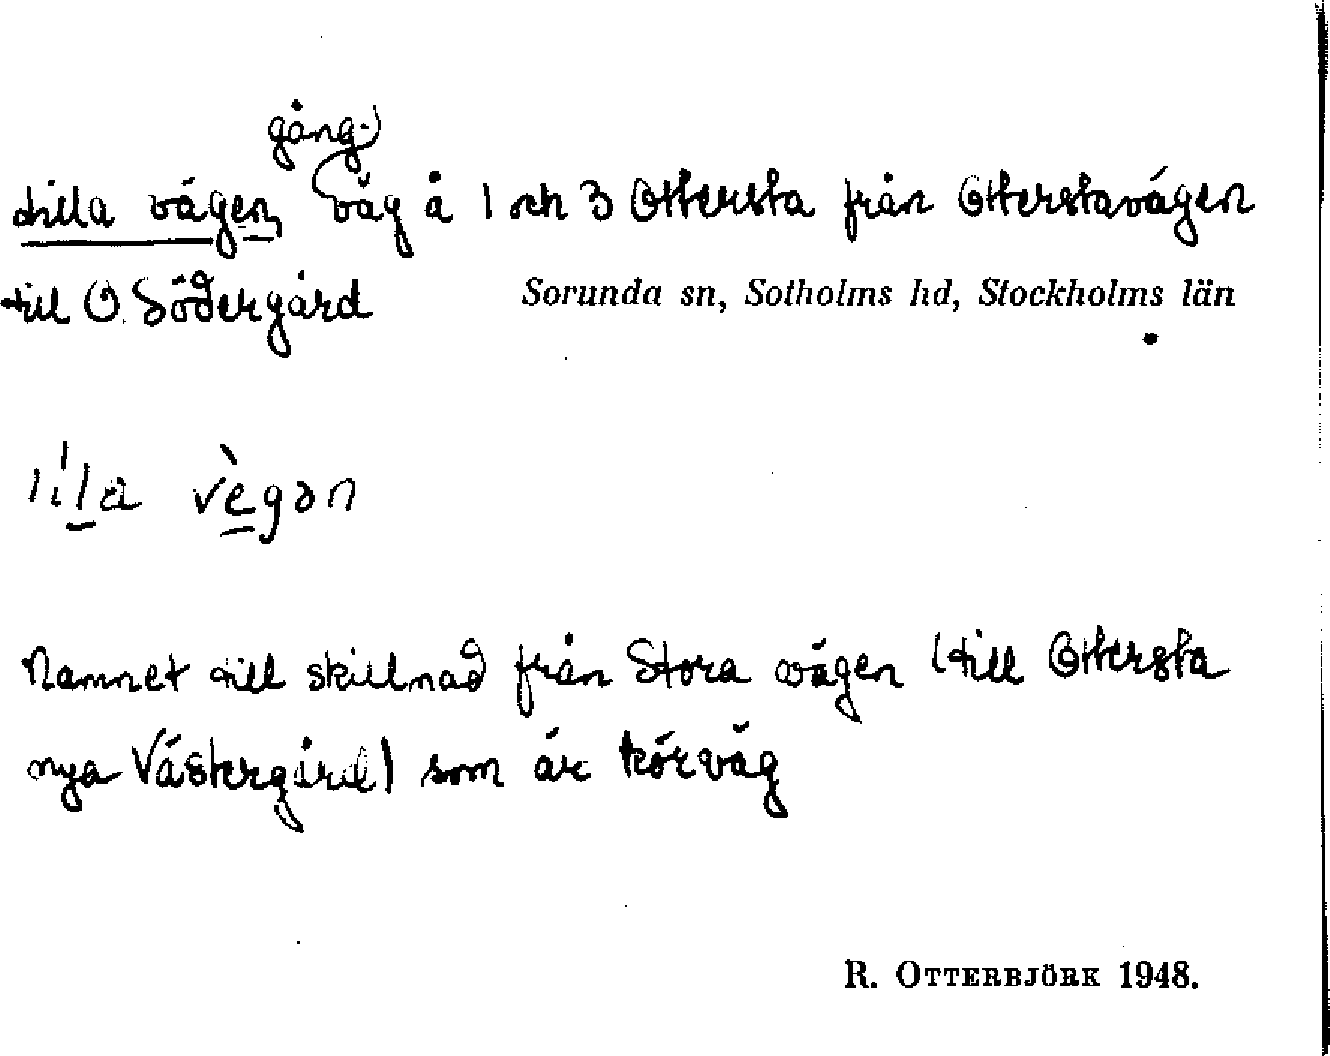 gång-
Lilla vägen väg å 1 och 3 Ottersta från Otterstavägen
till O. Södergård
Sorunda sn, Sotholms hd, Stockholms län
lila vègən
Namnet till skillnad från Stora vägen (till Ottersta
nya Västergård) som är körväg
R. OTTERBJÖRK 1948.